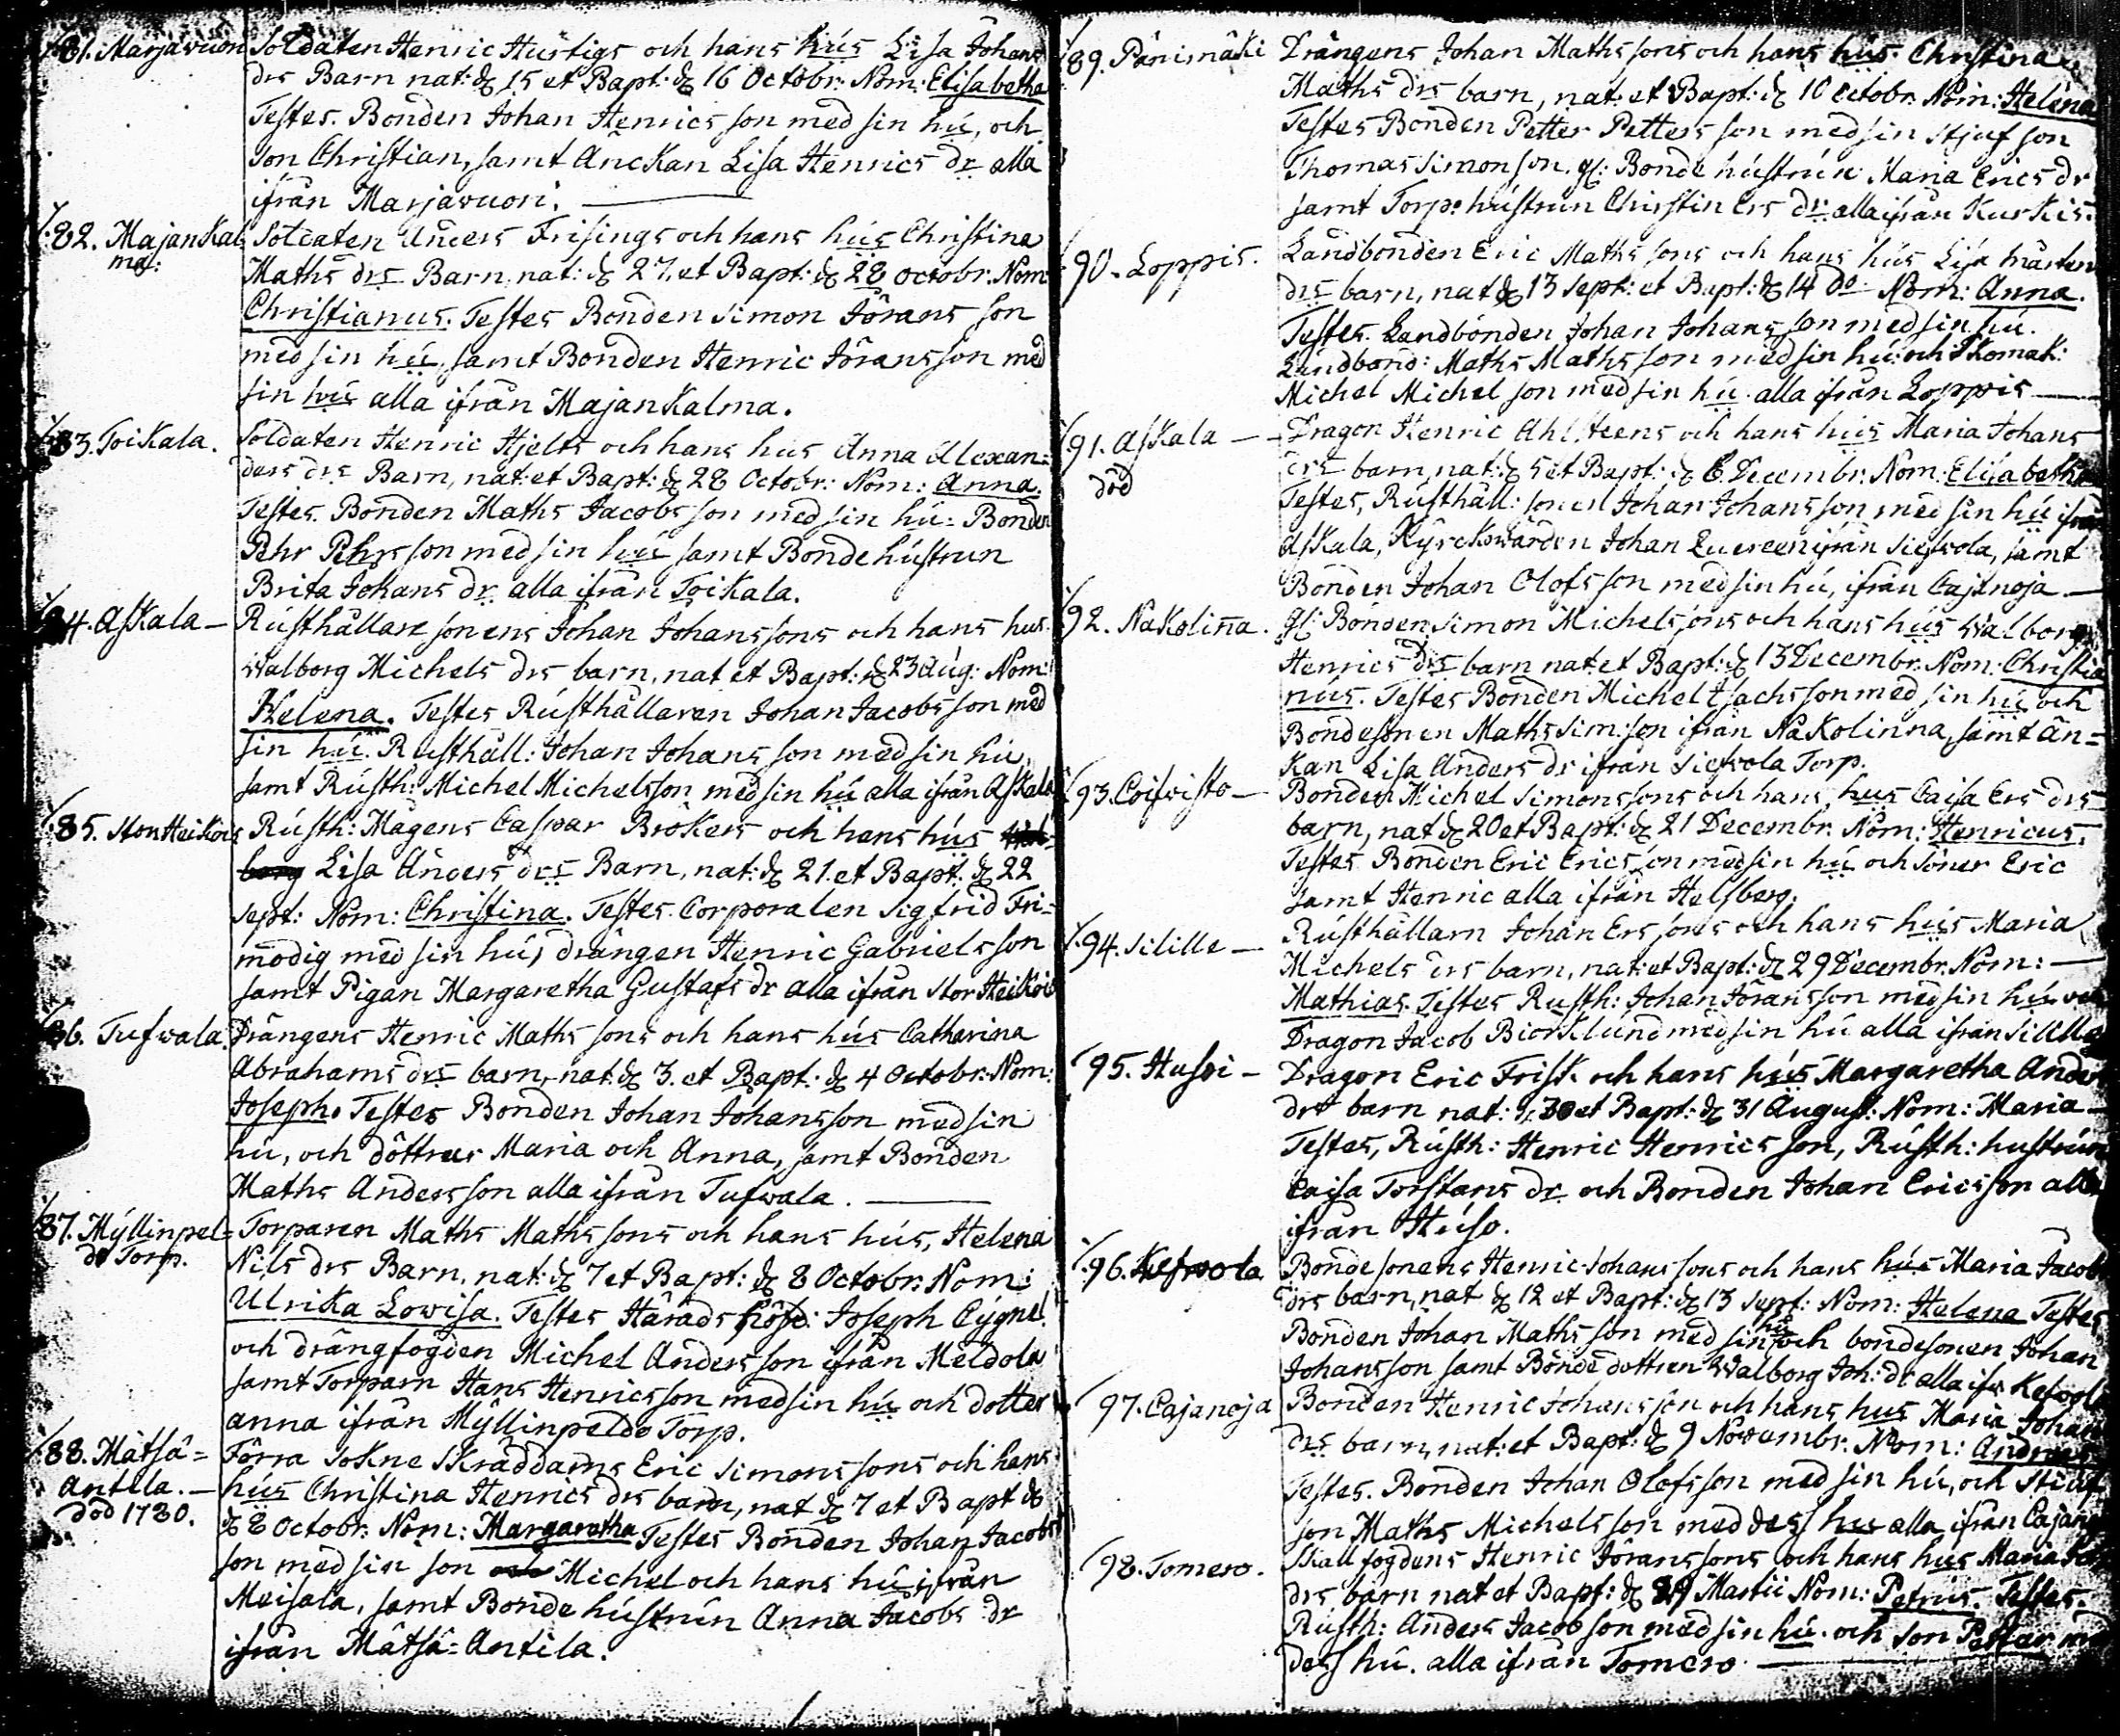 81. Marjavuori Soldaten Henric Hurtigs och hans hus Lisa Johans
drs Barn nat: d. 15 et Bapt: d. 16 Octobr: Nom: Elisabetha
Testes. Bonden Johan Henrics son med sin hu, och
son Christian, samt Änckan Lisa Henrics dr alla
ifrån Marjavuori.
82. Majankal Soldaten Anders Frisings och hans hus Christina
ma:
Maths drs Barn, nat: d. 27. et Bapt: d. 28 octobr: Nom:
Christianus. Testes Bonden Simon Jörans son
med sin hu, samt Bonden Henric Jöransson med
sin hu alla ifrån Majankalma.
83. Toikala. Soldaten Henric Hjelts och hans hus Anna Alexan=
ders drs Barn, nat: et Bapt: d. 28 Octobr: Nom: Anna.
Testes. Bonden Maths Jacobs son med sin hu: Bonden
Pehr Pehrsson med sin hu samt Bondehustrun
Brita Johans dr. alla ifrån Toikala.
84. Askala – Rusthållare sonens Johan Johanssons och hans hus.
Walborg Michels drs barn, nat et Bapt: d. 23 Aug: Nom:
Helena. Testes Rusthållaren Johan Jacobsson med
sin hu. Rusthåll: Johan Johans son med sin hu,
samt Rusth: Michel Michelsson med sin hu alla ifrån Askala
85. Storheikois Rusth: Mågens Caspar Brökers och hans hus
Lisa Anders drs Barn, nat: d. 21. et Bapt. d. 22
Sept: Nom: Christina. Testes. Corporalen Sigfrid Fri=
modig med sin hu, drängen Henric Gabrielsson
samt Pigan Margaretha Gustafs dr alla ifrån Stor Heikois
86. Tufwala. Drängens Henric Maths sons och hans hus Catharina
Abrahams drs barn, nat: d. 3. et Bapt: d. 4 Octobr: Nom:
Joseph. Testes Bonden Johan Johansson med sin
hu, och döttrar Maria och Anna, samt Bonden
Maths Andersson alla ifrån Tufwala.
87. Myllinpel= Torparen Maths Maths sons och hans hus, Helena
do Torp.
Nils drs Barn. nat: d. 7 et Bapt: d. 8 Octobr: Nom:
Ulrika Lowisa. Testes Härads höfd: Joseph Cygnel
och drängfogden Michel Andersson ifrån Meldola
samt Torparn Hans Henricsson med sin hu och dotter
anna ifrån Myllinpeldo Torp.
88. Mätsä= Förra Sokne Skräddarns Eric Simonssons och hans
Antila. – hus Christina Henrics drs barn, nat d. 7 et Bapt
död 1780. d. 8 Octobr: Nom: Margaretha Testes Bonden Johan Jacobs
son med sin son Michel och hans hu ifrån
Meisala, samt Bonde hustrun Anna Jacobs dr
ifrån Mätsä=Antila.
89. Pänismäki Drängens Johan Maths sons och hans hus. Christina
Maths drs barn, nat: et Bapt: d. 10 octobr. Nom: Helena
Testes Bonden Petter Petters son med sin Stjuf son
Thomas Simonson, gl: Bonde hustrun Maria Erics dr
samt Torp: hustrun Christin Ers dr. alla ifrån Kurkis.
90. Loppis. Landbonden Eric Maths sons och hans hus Lisa Mårtens
drs barn, nat d. 13 Sept: et Bapt: d. 14 Do. Nom: Anna.
Testes. Landbonden Johan Johans son med sin hu.
Landbond: Maths Maths son med sin hu: och Skomak:
Michel Michel son med sin hu. alla ifrån Loppis
91. Askala – Dragon Henric Ahlsteens och hans hus Maria Johans
död
drs barn, nat: d. 5 et Bapt: d. 6 Decembr. Nom: Elisabetha
Testes, Rusthåll: sonen Johan Johansson med sin hu ifrån
Askala, Kyrckowärden Johan ifrån Siefvola, samt
Bonden Johan Olofsson med sin hu, ifrån Cajanoja
92. Nakolinna. gl: Bonden Simon Michelssons och hans hus Walborg
Henrics drs barn nat: et Bapt: d. 13 Decembr: Nom: Christia
nus. Testes Bonden Michel Isachsson med sin hu och
Bondesonen Maths Sim:son ifrån Nakolinna, samt än=
kan Lisa Anders dr ifrån Siefvola Torp.
93. Coifvisto – Bonden Michel Simonssons och hans hus Caisa Ers drs
barn, nat d. 20 et Bapt: d. 21 Decembr. Nom: Henricus.
Testes. Bonden Eric Ericsson med sin hu och Söner Eric
samt Henric alla ifrån Helsberg.
94. Silille – Rusthållarn Johan Ers sons och hans hus Maria
Michels drs barn, nat: et Bapt: d. 29 Decembr. Nom:
Mathias. Testes Rusth: Johan Jöransson med sin hu och
Dragon Jacob Biörklund med sin hu alla ifrån Silille
95. Husoi – Dragon Eric Frisk och hans hus Margaretha Anders
drs barn nat: d. 30 et Bapt: d. 31 August: Nom: Maria
Testes, Rusth: Henric Henrics son, Rusth: hustrun
Caisa Torstans dr och Bonden Johan Ericsson alla
ifrån Huso.
96. Kefwola Bonde sonens Henric Johans sons och hans hus Maria Jacobs
drs barn, nat d. 12 et Bapt: d. 13 Sept: Nom: Helena Testes
Bonden Johan Maths son med sin hu och bondesonen Johan
Johansson samt Bonde dottren Walborg Joh: dr alla ifr Kefwola
97. Cajanoja Bonden Henric Johans son och hans hus Maria Johans
drs barn, nat: et Bapt: d. 9 Novembr: Nom: Andreas
Testes. Bonden Johan Olofsson med sin hu, och Stiuf
son Maths Michelsson med dess hu alla ifrån Cajanoja
98. Tomero. Skallfogdens Henric Jöranssons och hans hus Maria
drs barn nat et Bapt: d. 29 Martii Nom: Petrus. Testes.
Rusth: Anders Jacobson med sin hu. och son Petter med
dess hu. alla ifrån Tomero